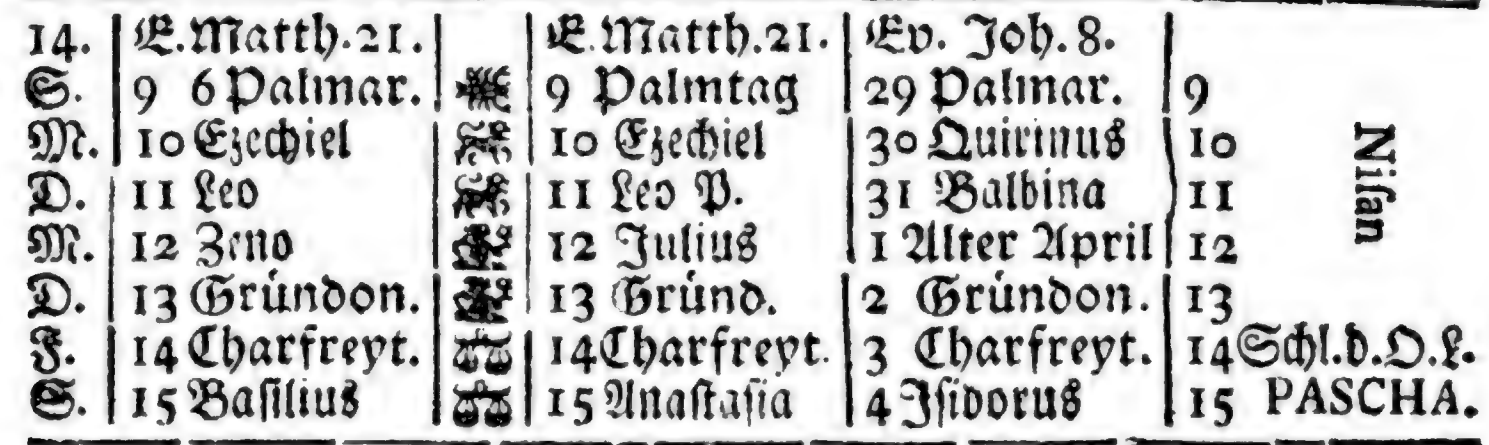 14. E.Matth.21. E.Matth.21. Ev. Joh. 8.
S. 9 6 Palmar. 9 Palmtag 29 Palmar. 9
M. 10 Ezechiel 10 Ezechiel 30 Quirinus 10
D. 11 Leo 11 Leo P. 31 Balbina 11
M. 12 Zeno 12 Julius 1 Alter April 12
D. 13 Gründon. 13 Gründ. 2 Gründon. 13
F. 14 Charfreyt. 14 Charfreyt. 3 Charfreyt. 14 Schl.d.O.L.
S. 15 Basilius 15 Anastasia 4 Isidorus 15 PASCHA.
Nisan